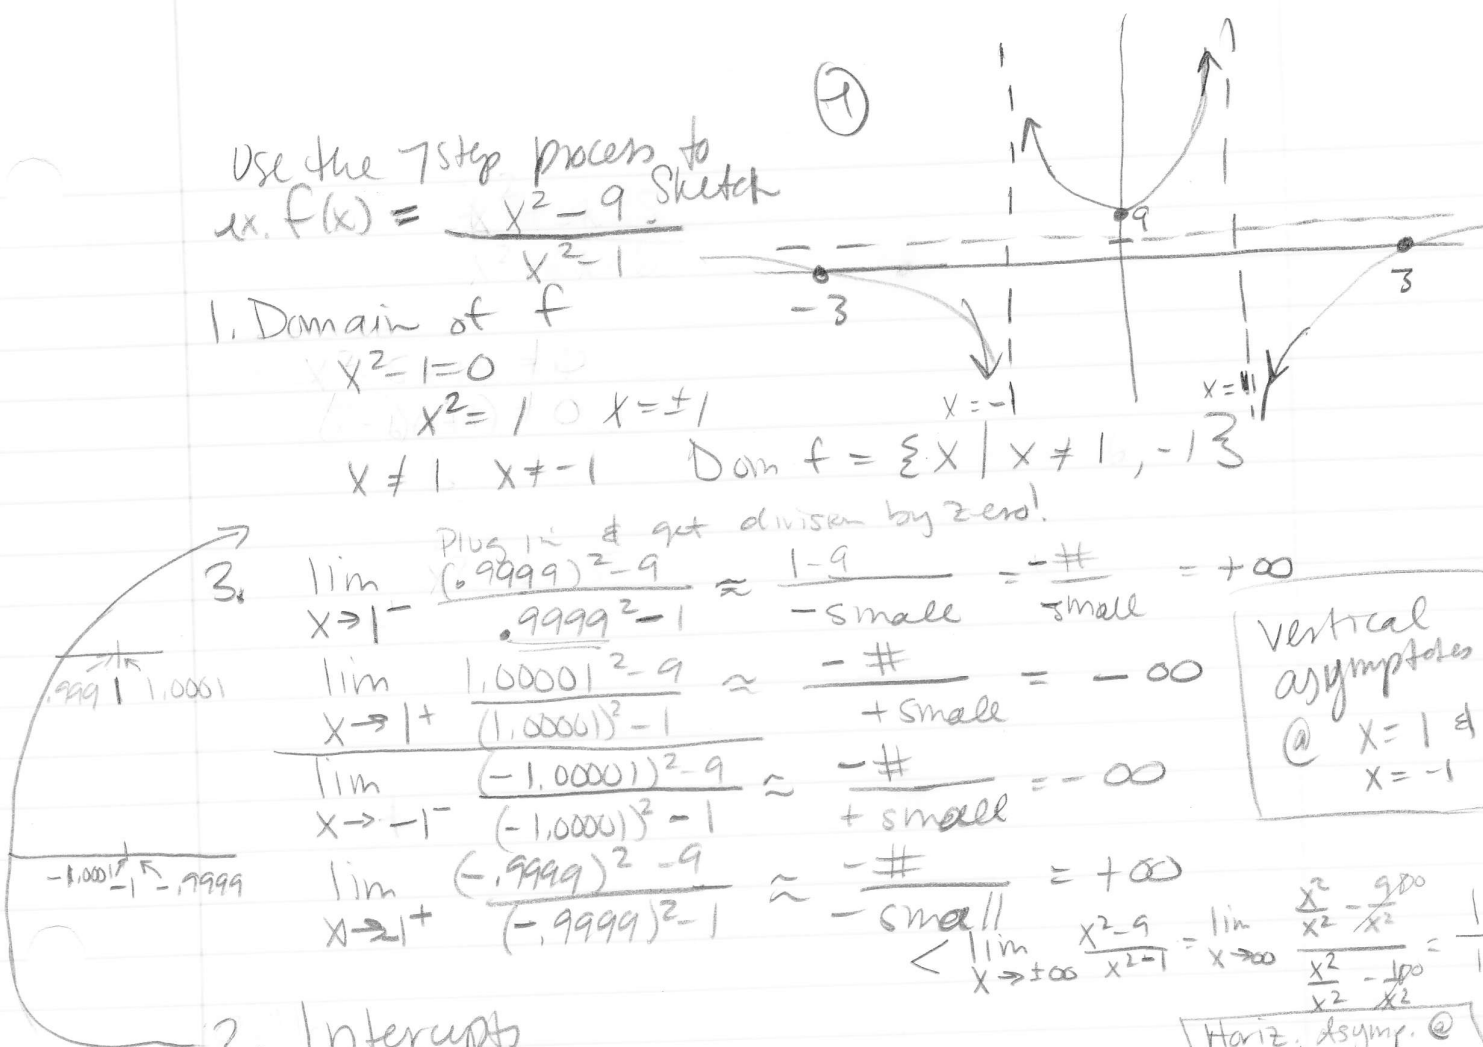 7
Use the 7 step process to
sketch
ex. f(x) = x² - 9 / x² - 1
9
-3
3
x = -1
x = 1
1. Domain of f
x² - 1 = 0
x² = 1 x = ±1
x ≠ 1 x ≠ -1 Dom f = {x | x ≠ 1, -1}
Plug in & get division by zero!
3. lim x→1⁻ (.9999)² - 9 / .9999² - 1 ≈ 1-9 / -small = -# / small = +∞
.999 1 1.0001
lim x→1⁺ 1.00001² - 9 / (1.00001)² - 1 ≈ -# / +small = -∞
vertical
asymptotes
@ x = 1 &
x = -1
lim x→-1⁻ (-1.00001)² - 9 / (-1.00001)² - 1 ≈ -# / +small = -∞
-1.0001 -1 -.9999
lim x→-1⁺ (-.9999)² - 9 / (-.9999)² - 1 ≈ -# / -small = +∞
< lim x→±∞ x² - 9 / x² - 1 = lim x→∞ x²/x² - 9/x² 0 / x²/x² - 1/x² 0 = 1/1
2. Intercepts
Horiz. Asymp. @